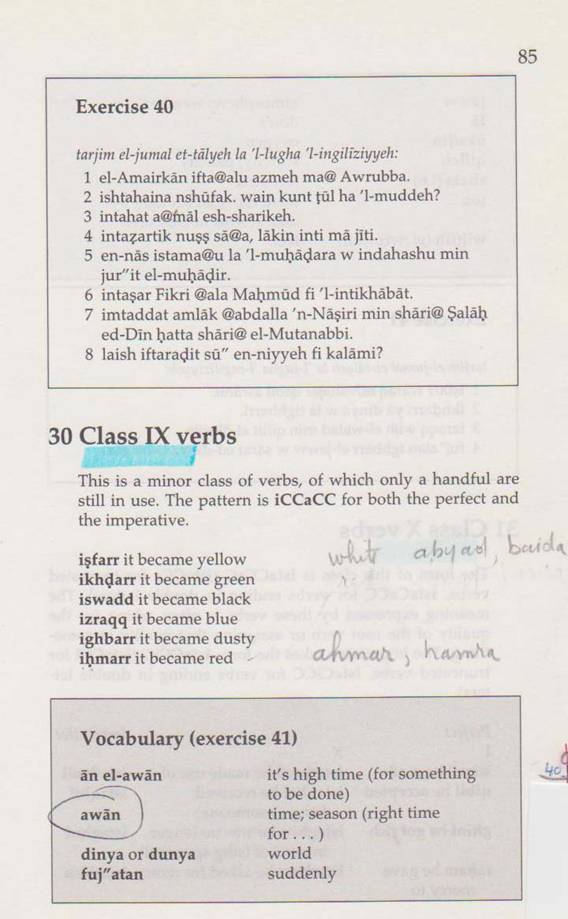 85
Exercise 40
tarjim el-jumal et-tālyeh la 'l-lugha 'l-ingilīziyyeh:
1 el-Amairkān ifta@alu azmeh ma@ Awrubba.
2 ishtahaina nshūfak. wain kunt ṭūl ha 'l-muddeh?
3 intahat a@māl esh-sharikeh.
4 intaẓartik nuṣṣ sā@a, lākin inti mā jīti.
5 en-nās istama@u la 'l-muḥāḍara w indahashu min
jur"it el-muḥāḍir.
6 intaṣar Fikri @ala Maḥmūd fi 'l-intikhābāt.
7 imtaddat amlāk @abdalla 'n-Nāṣiri min shāri@ Ṣalāḥ
ed-Dīn ḥatta shāri@ el-Mutanabbi.
8 laish iftaraḍit sū" en-niyyeh fi kalāmi?
30 Class IX verbs
This is a minor class of verbs, of which only a handful are
still in use. The pattern is iCCaCC for both the perfect and
the imperative.
iṣfarr it became yellow
whit abyad, baida
ikhḍarr it became green
iswadd it became black
izraqq it became blue
ighbarr it became dusty
iḥmarr it became red -
ahmar, hamra
Vocabulary (exercise 41)
ān el-awān it's high time (for something
to be done)
awān time; season (right time
for . . .)
dinya or dunya world
fuj"atan suddenly
40